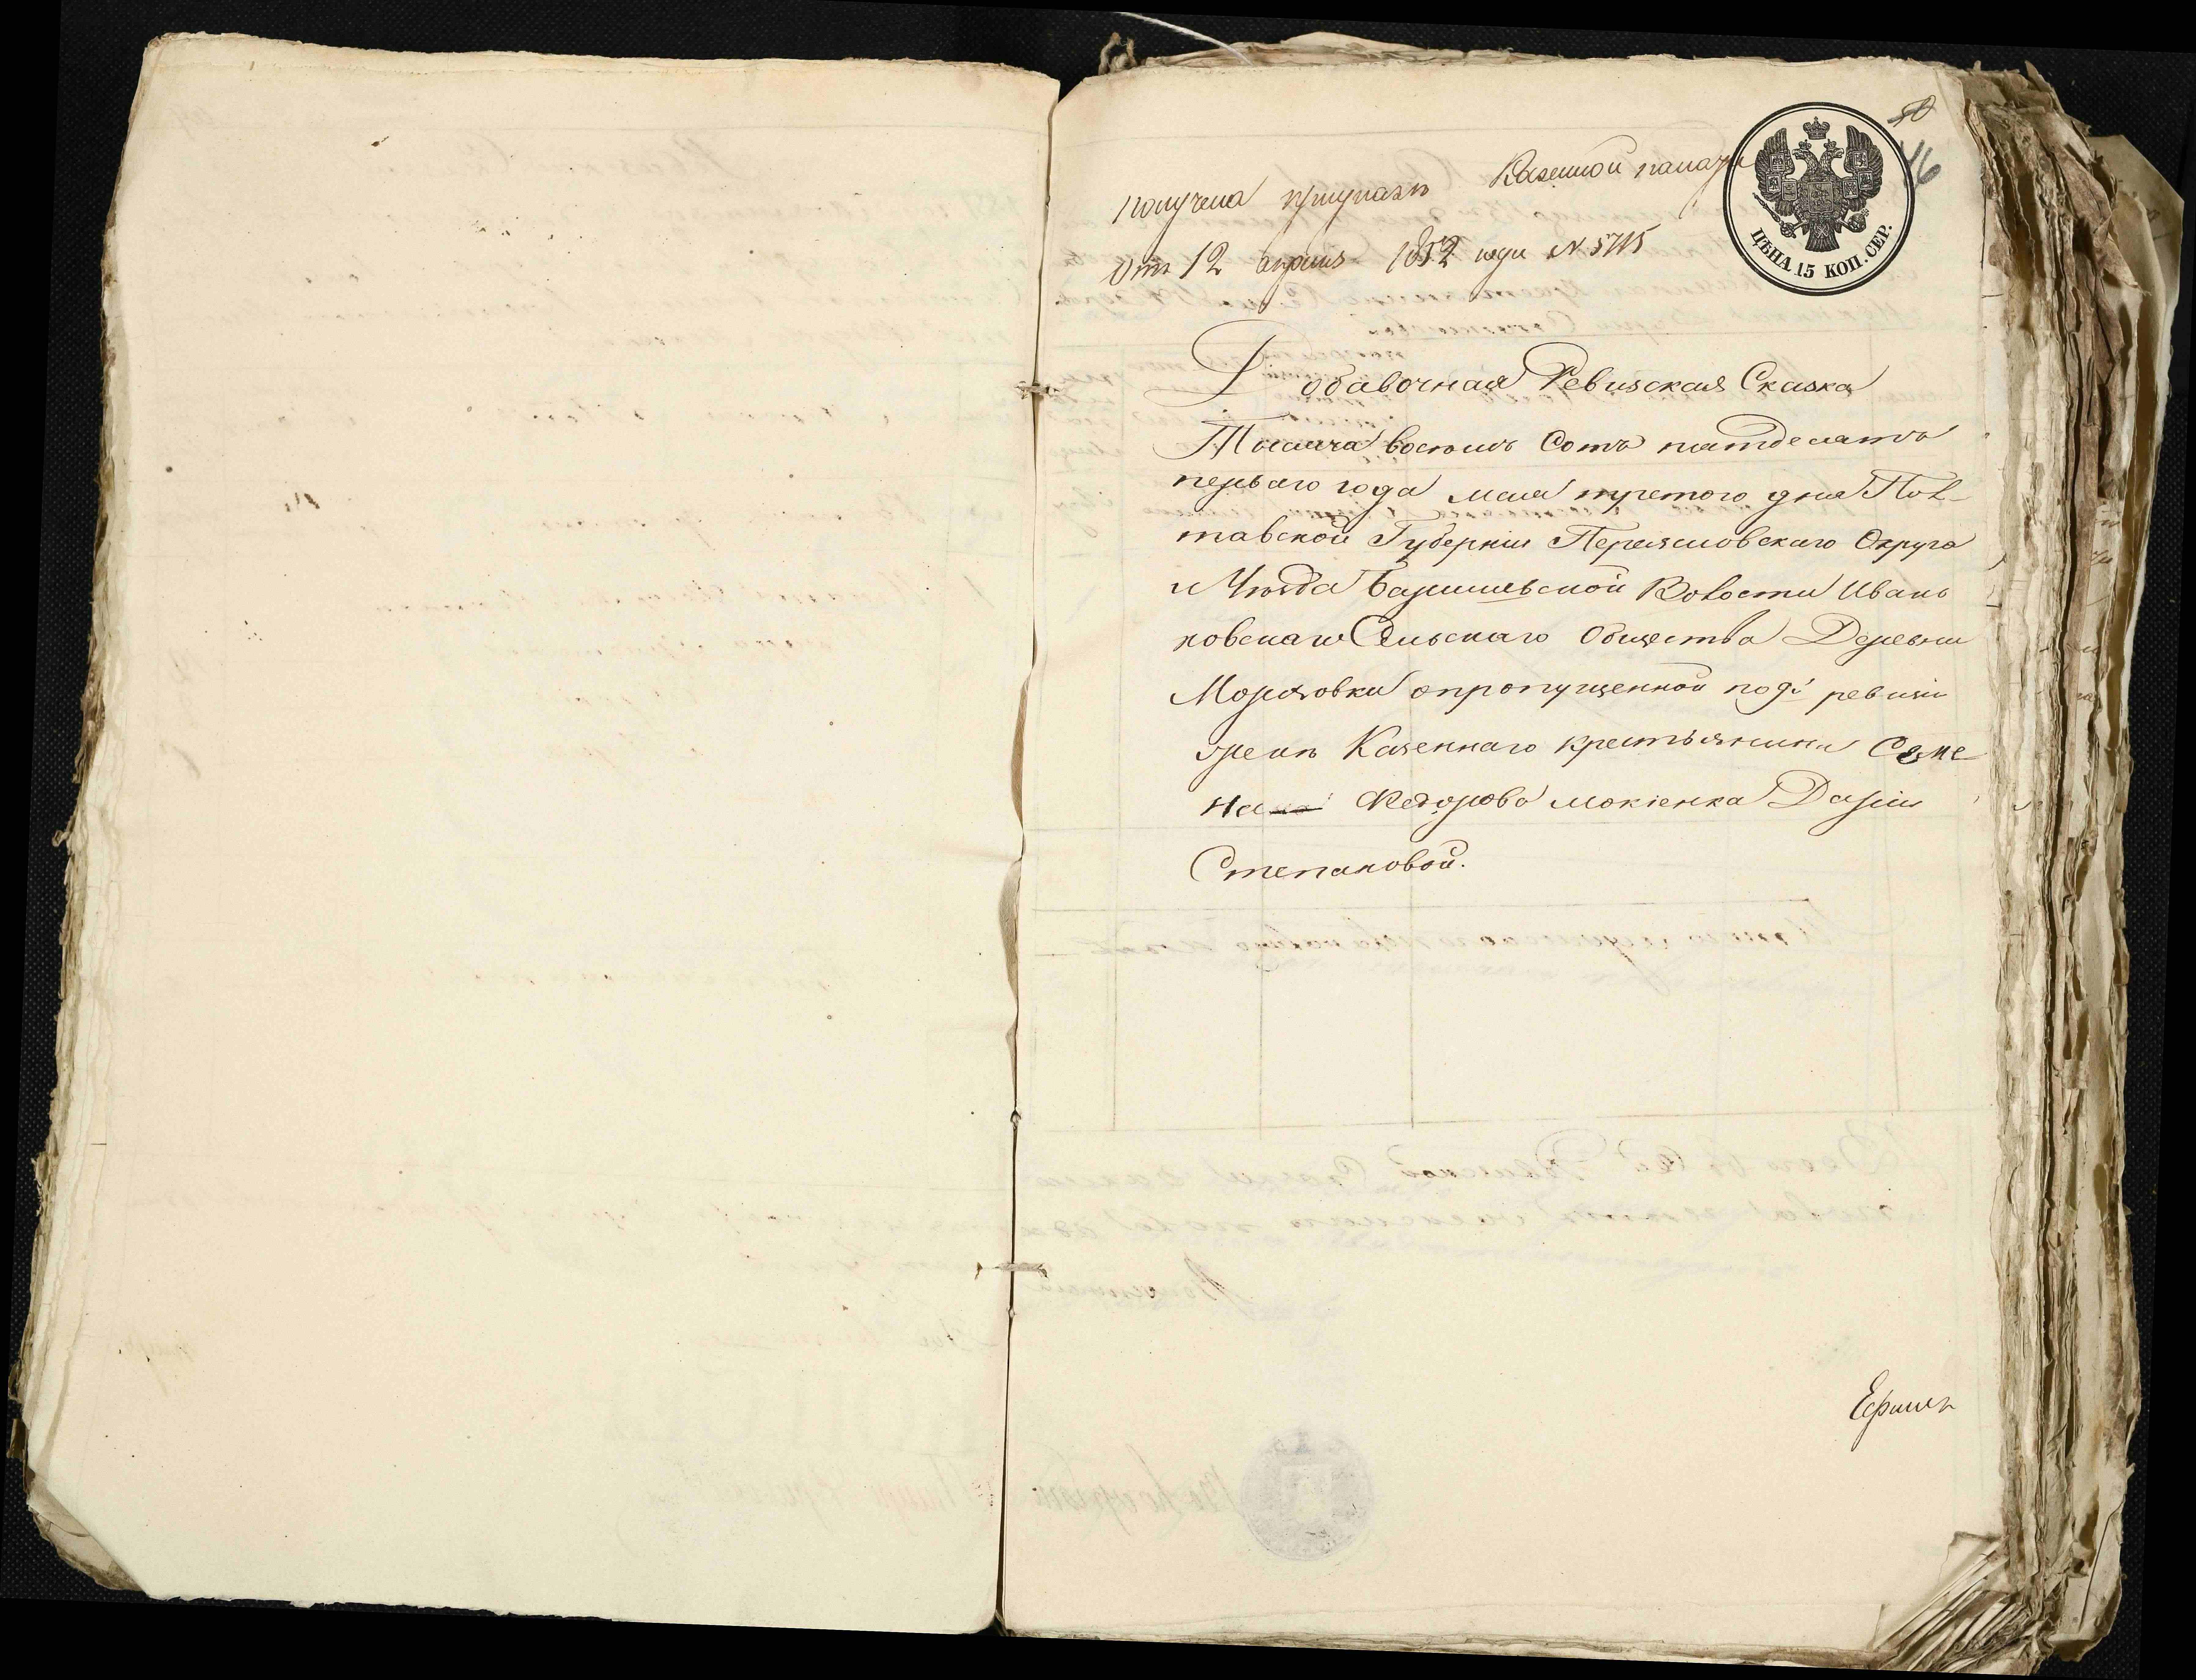 50
46
Получена приуказъ Казенной палаты
Отъ 12 апреля 1852 года № 5715
ЦѢНА 15 КОП. СЕР.
Добавочная Ревизская Сказка
Тысяча восемь Сотъ пятдесятъ
перваго года мая третого дня Пол-
тавской Губерніи Переясловскаго Округа
и Уѣзда Барышевской Волости Ивань
ковскаго Сельскаго Общества Деревни
Морозовки опропущенной под ревизіи
жены Казеннаго крестьянина Семе
на Федорова Мокіенка Даріи
Степановой.
Ефимъ